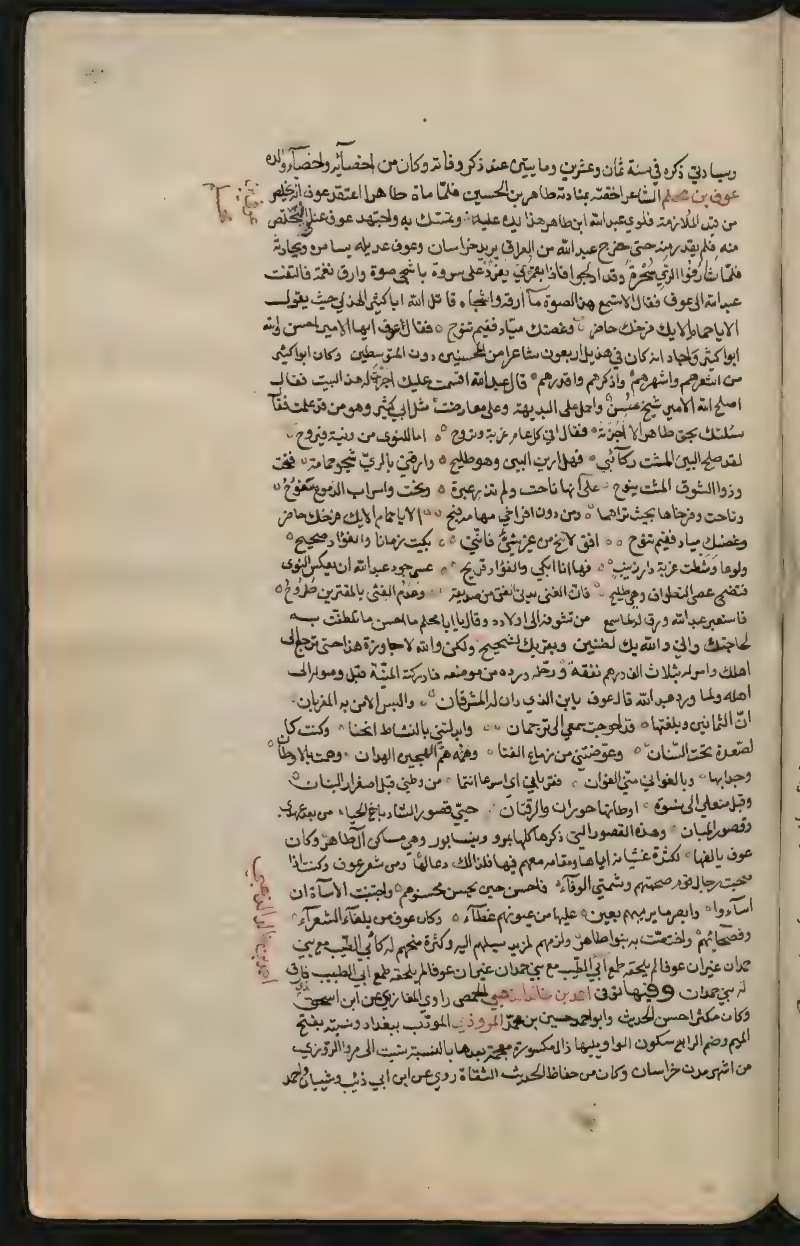 وسيأتي ذكره في سنة ثمان وعشرين ومايتين عند ذكر وفاته وكان من اخصائه واخصاء والده
عوف بن محلم الشاعر اختصه بمنادمته طاهر بن الحسين فلما مات طاهرا اعتقد عوف انه يخلص
من قيد الملازمة فلوي عبدالله ابن طاهر هذا يده عليه وتمسك به واجتهد عوف على التخلص
منه فلم يقدر منه حتى خرج عبدالله من العراق يريد خراسان وعوف عديله يسامره ويحادثه
فلما شارفوا الري سحرة وقد ادلجوا فاذا بقمري يغرد على سروة باشجى صوة وارق نغمة فالتفت
عبدالله الى عوف فقال الا تسمع هذا الصوة ما ارقه واشجاه قاتل الله ابا كبير الهذلي حيث يقول
الا يا حمام الايك فرخك حاضر وغصنك مياد ففيم تنوح فقال عوف ايها الامير احسن والله
ابو كبير واجاد انه كان في هذيل اربعون شاعرا من المحسنين دون المتوسطين وكان ابو كبير
من اشعرهم واشهرهم واذكرهم واقدرهم قال عبدالله اقسمت عليك اجزت له هذا البيت فقال
اصلح الله الامير شيخ مسن واحمل على البديهة وعلى معارضة مثل ابي كبير وهو من قد علمت فقال
سئلتك بحق طاهر الا اجزته فقال افي كل عام غربة ونزوح اما للنوى من ونية فتريح
لقد طلح البين المشت ركائبي فهل ارين البين وهو طليح وارقني بالري شجو حمامة فنحت
وذو الشوق المشت ينوح على انها ناحت ولم تذر عبرة ونحت واسراب الدموع سفوح
وناحت وفرخاها بحيث تراهما ومن دون افراخي مهامه فيح الا يا حمام الايك فرخك حاضر
وغصنك مياد ففيم تنوح افق لا تنح من غير شيء فانني بكيت زمانا والفؤاد صحيح
ولوعا وشطت غربة دار زينب فها انا ابكي والفؤاد قريح عسى جود عبدالله ان يعكس النوى
فتضحى عصى التطواف وهي طليح فان الغنى يدني الفتى من صديقه وعدم الفتى بالمقترين طروح
فاستعبر عبدالله ورق له لما سمع من تشوقه الى اولاده وقال يا ابا محلم ما احسن ما تلطفت به
لحاجتك واني والله بك لضنين وبقربك لشحيح ولكن والله لا جاوزة هذا حتى ترجع الى
اهلك وامر له بثلاث الف درهم نفقة ورحله ورده من موضعه فادركته المنية قبل وصوله الى
اهله ولما ورد عبدالله قال عوف يا بن الذي دان له المشرقان والبس الامن به المغربان
ان الثمانين وبلغتها قد احوجت سمعي الى ترجمان وابدلتني بالنشاط انحنا وكنت كا
لصعدة تحت السنان وعوضتني من زماع الفتا وهمه هم الهجين الهدان وهمت بالاوطا
وجدابها وبالغواني مني الغوان فقرباني اي اسرعا انتما من وطني قبل اصفرار البنان
وقبل منعاي الى نسوة اوطانها حوران والرقتان حيي قصور الشاد باخ الحيا من بعد عهدي
وقصور الميان وهذه القصور التي ذكرها كلها بمرو ونيسابور وهي مساكن آل طاهر وكان
عوف يالفها لكثرة غشيانه اياها ومقامه معهم فيها فلذلك دعا لها ومن شعر عوف وكنت اذا
صحبت رجال قوم صحبتهم وشيمتي الوفاء فاحسن حين يحسن محسنوهم واجتنب الاساءة ان
اساءوا وابصر ما يريبهم بعين عليها من عيونهم غطاء وكان عوف من بلغاء الشعراء
وفصحائهم واختصت به بنو طاهر ولزمهم لمزيد ميلهم اليه وكثرة منحهم له كابي الطيب مع بني
حمدان غير ان عوفا لم يلحقه طمع ابي الطيب مع بني حمدان غير ان عوفا لم يلحقه طمع ابي الطيب فارق
له بني حمدان وفيها توفى احمد بن خالد الذهبي الحمصي راوي المغازي عن ابن اسحق
وكان مكثرا حسن الحديث وابو احمد حسين بن محمد المروذي المؤدب ببغداد ونسبته بفتح
الميم وضم الرا مع سكون الواو يليها ذال مكسورة معجمة بعدها يا النسبة نسبت الى مروا الروذ
من اشهر مدن خراسان وكان من حفاظ الحديث الثقاة روى عن ابن ابي ذئب وشيبان واحمد
عوف بن محلم
احمد بن خالد الذهبي